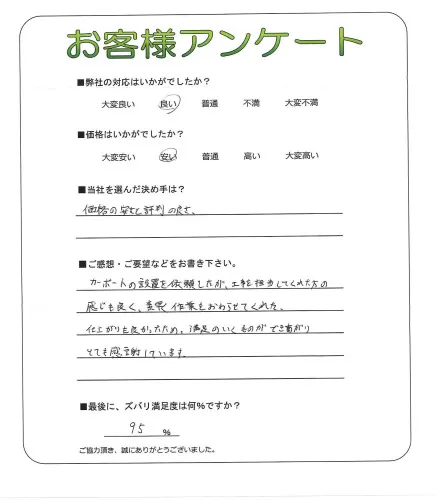 お客様アンケート
■弊社の対応はいかがでしたか？
大変良い 良い 普通 不満 大変不満
■価格はいかがでしたか？
大変安い 安い 普通 高い 大変高い
■当社を選んだ決め手は？
価格の安さと評判の良さ、
■ご感想・ご要望などをお書き下さい。
カーポートの設置を依頼したが、工事を担当してくれた方の
感じも良く、 作業をおわらせてくれた。
仕上がりも良かったため、満足のいくものができ
とても感謝しています
■最後に、ズバリ満足度は何％ですか？
95 ％
ご協力頂き、誠にありがとうございました。